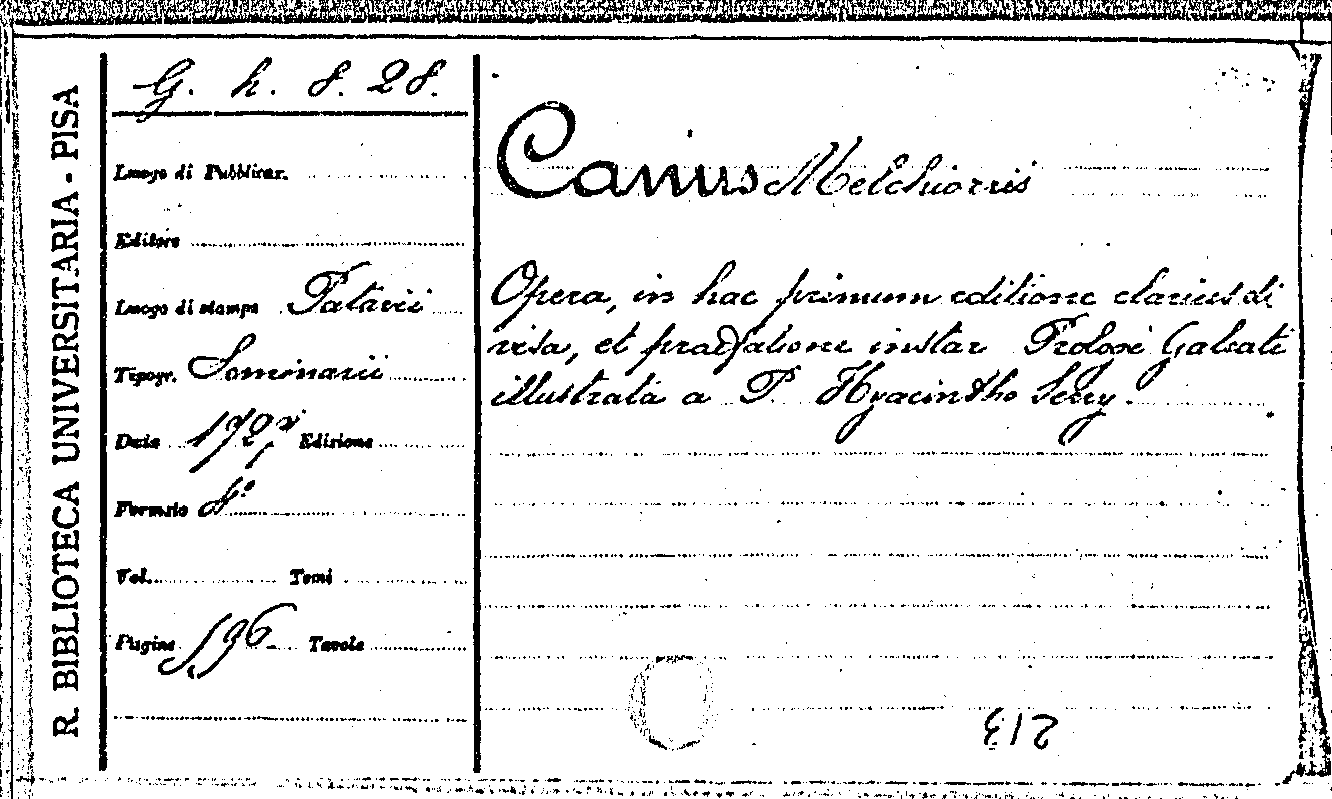 R. BIBLIOTECA UNIVERSITARIA - PISA
G. h. 8. 28.
Luogo di Pubblicaz.
Editore
Luogo di stampa Patavii
Tipogr. Seminarii
Data 1727 Edizione
Formato 8°
Vol. Tomi
Pagine 596 Tavole
Canus Melchiorris
Opera, in hac primum editione clarius di
visa, et praefatione instar Prologi Galeati
illustrata a P. Hyacintho Serry.
213